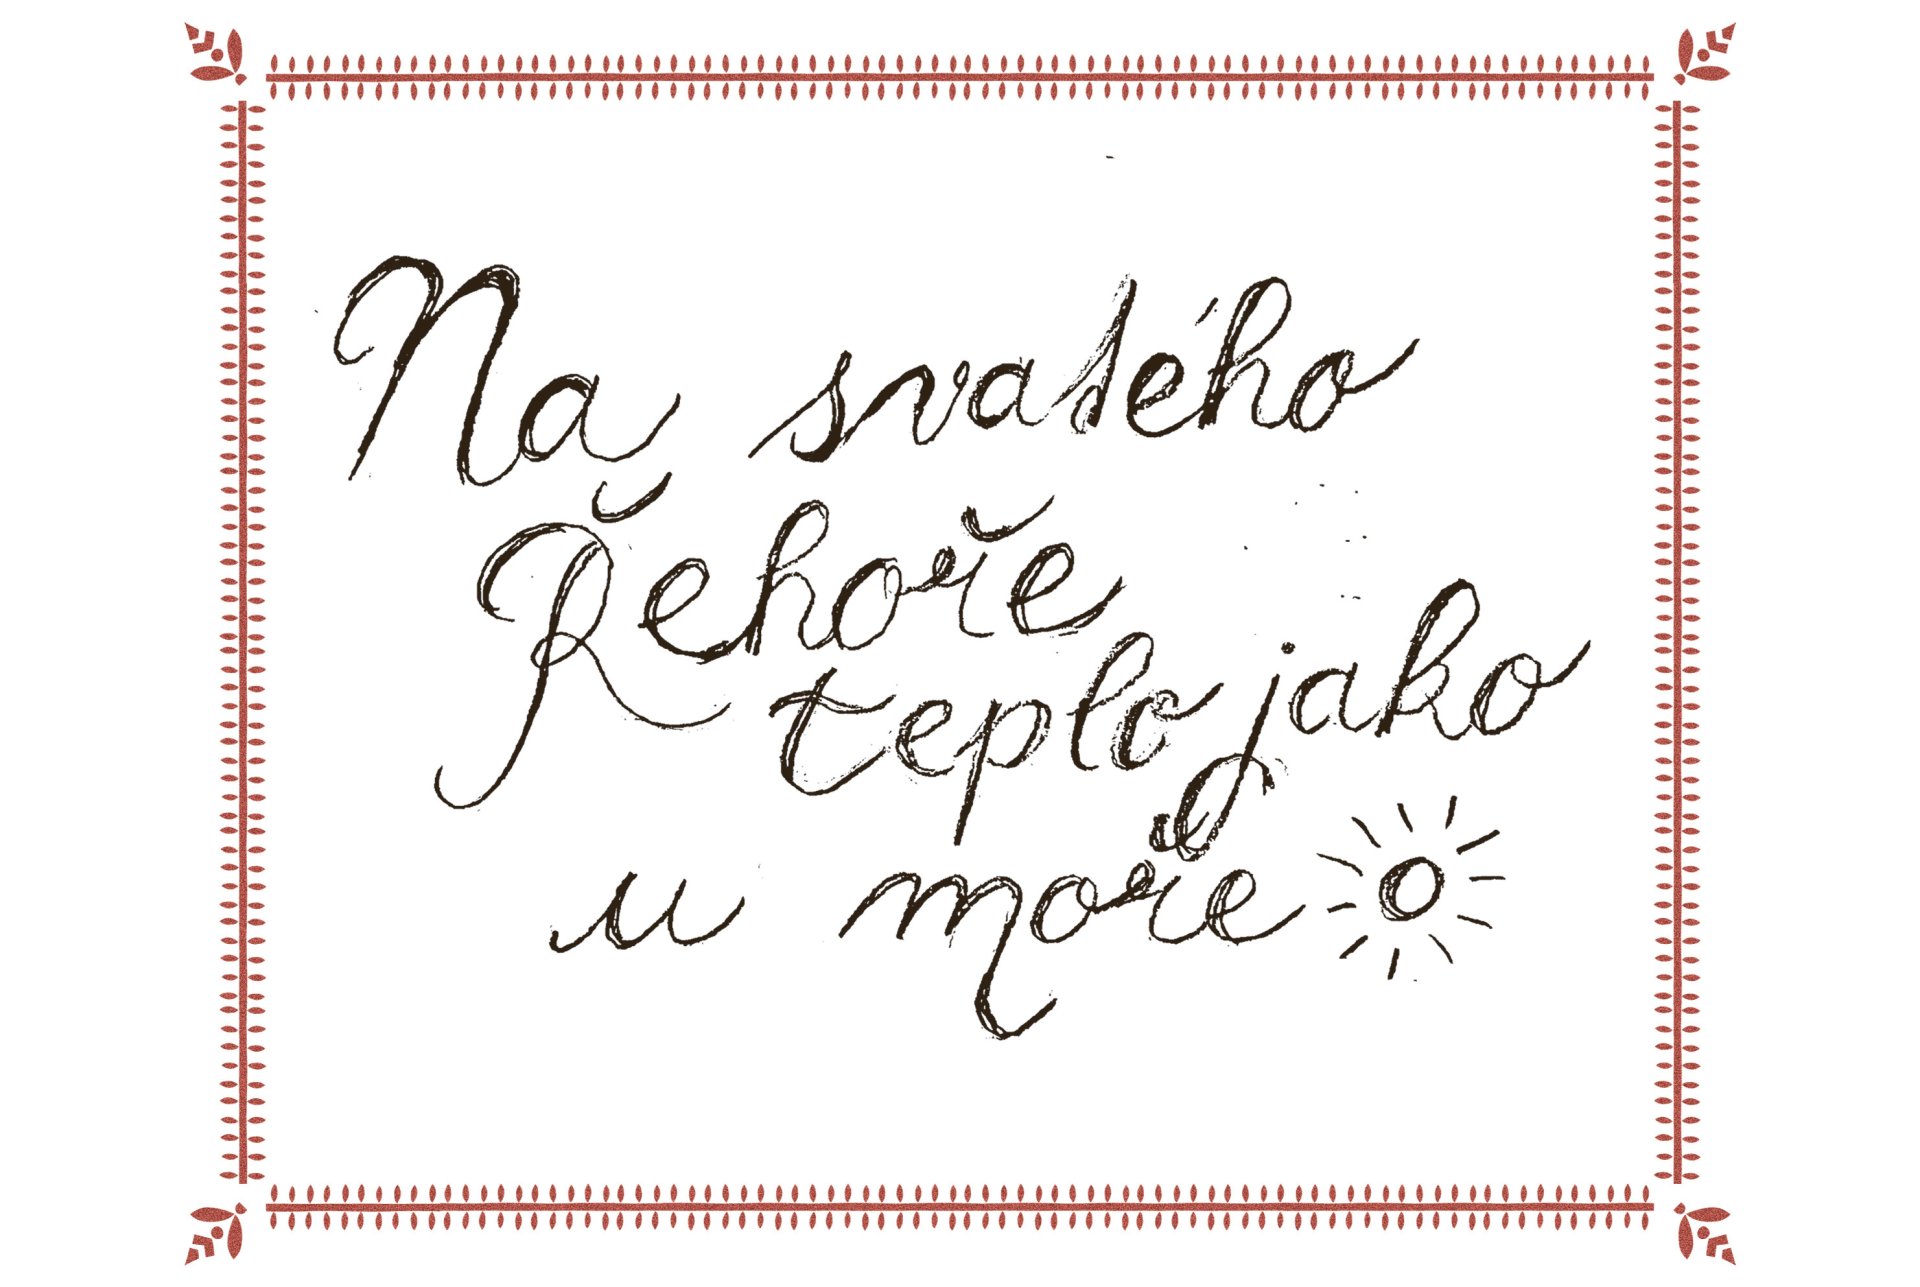 Na svatého
Řehoře
teplo jako
u moře